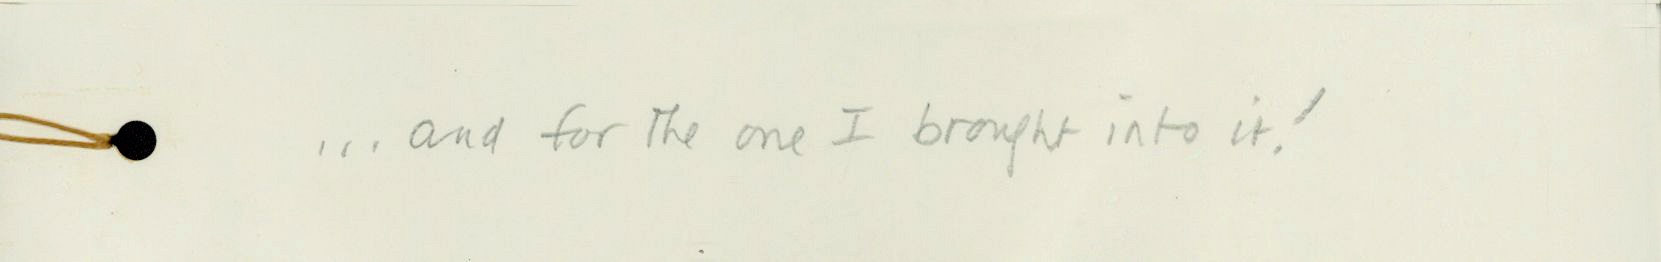 ... and for the one I brought into it!